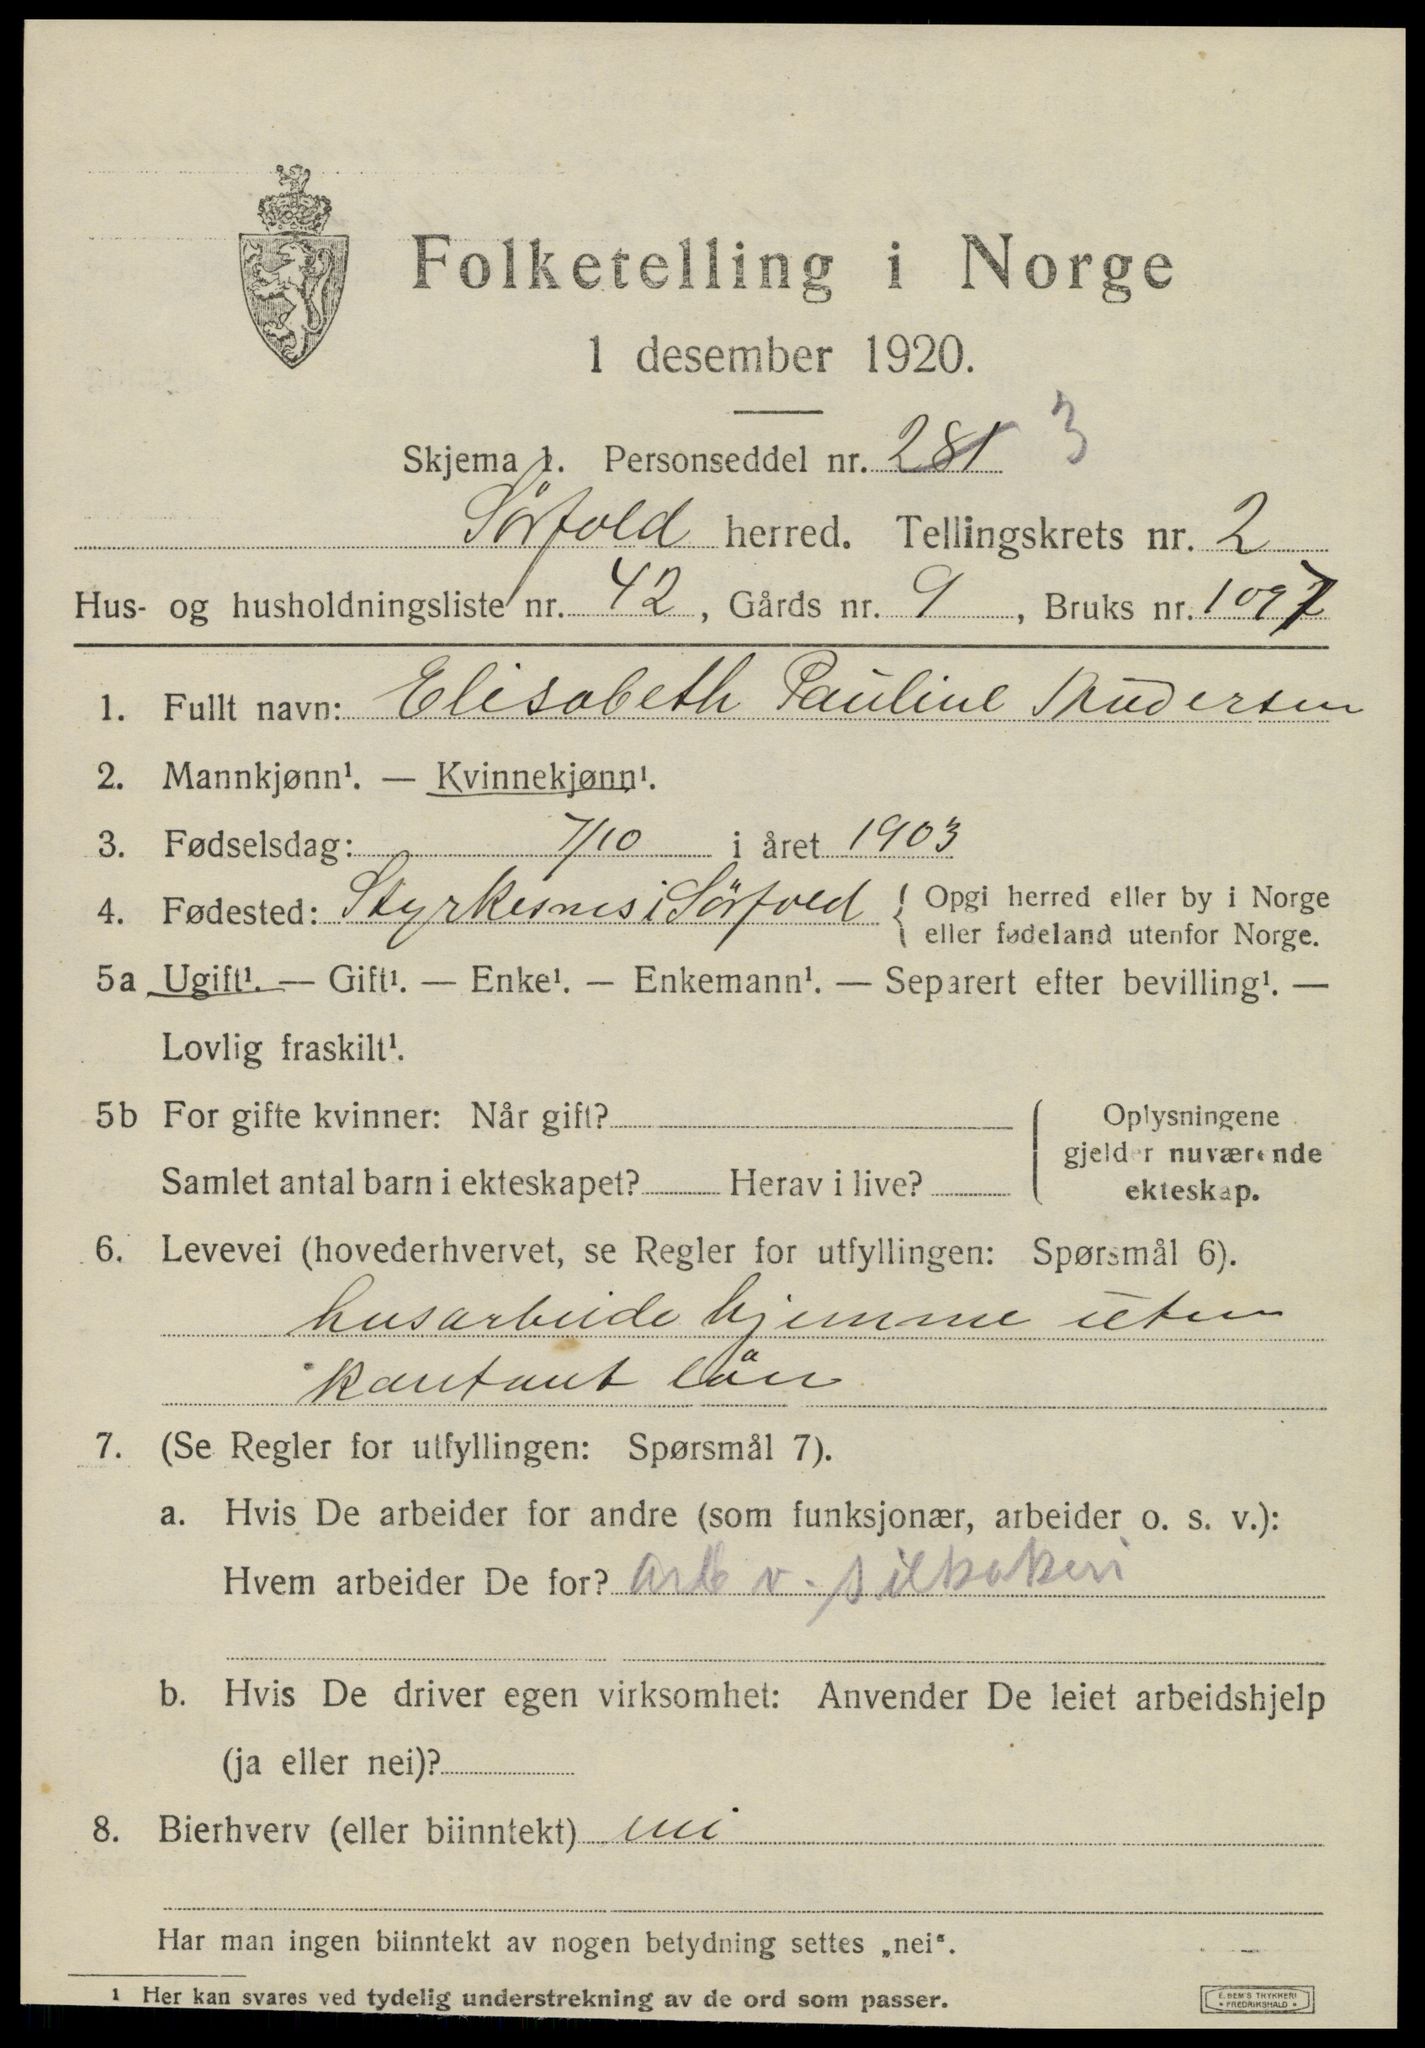 Folketelling i Norge
1 desember 1920.
Skjema 1. Personseddel nr. 281 3
Sörfold herred. Tellingskrets nr. 2
Hus- og husholdningsliste nr. 42, Gårds nr. 9, Bruks nr. 1097
1. Fullt navn: Elisabeth Pauline
2. Mannkjønn¹. — Kvinnekjønn¹.
3. Fødselsdag: 7/10 i året 1903
4. Fødested: Styrkesnes i Sörfold { Opgi herred eller by i Norge
eller fødeland utenfor Norge.
5a Ugift¹. — Gift¹. — Enke¹. — Enkemann¹. — Separert efter bevilling¹. —
Lovlig fraskilt¹.
5b For gifte kvinner: Når gift?
Samlet antal barn i ekteskapet? Herav i live?
Oplysningene
gjelder nuværende
ekteskap.
6. Levevei (hovederhvervet, se Regler for utfyllingen: Spørsmål 6).
husarbeide hjemme uten
kontant lön
7. (Se Regler for utfyllingen: Spørsmål 7).
a. Hvis De arbeider for andre (som funksjonær, arbeider o. s. v.):
Hvem arbeider De for? arb v.
b. Hvis De driver egen virksomhet: Anvender De leiet arbeidshjelp
(ja eller nei)?
8. Bierhverv (eller biinntekt) nei
Har man ingen biinntekt av nogen betydning settes „nei“.
¹ Her kan svares ved tydelig understrekning av de ord som passer.
E. BEM'S TRYKKERI
• FREDRIKSHALD •